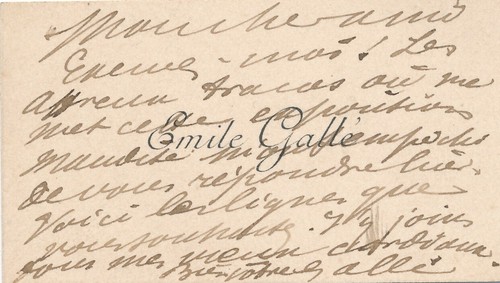 Mon cher ami
Excusez-moi ! Les
affreux tracas où me
met cette exposition
Emile Gallé
maudite m'ont empêché
de vous répondre hier.
Voici les lignes que
vous souhaitez. J'y joins
tous mes vœux cordiaux.
Bien vôtre E Gallé